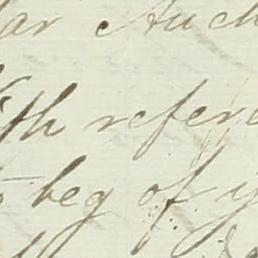 ar Auch
With refere
beg of y